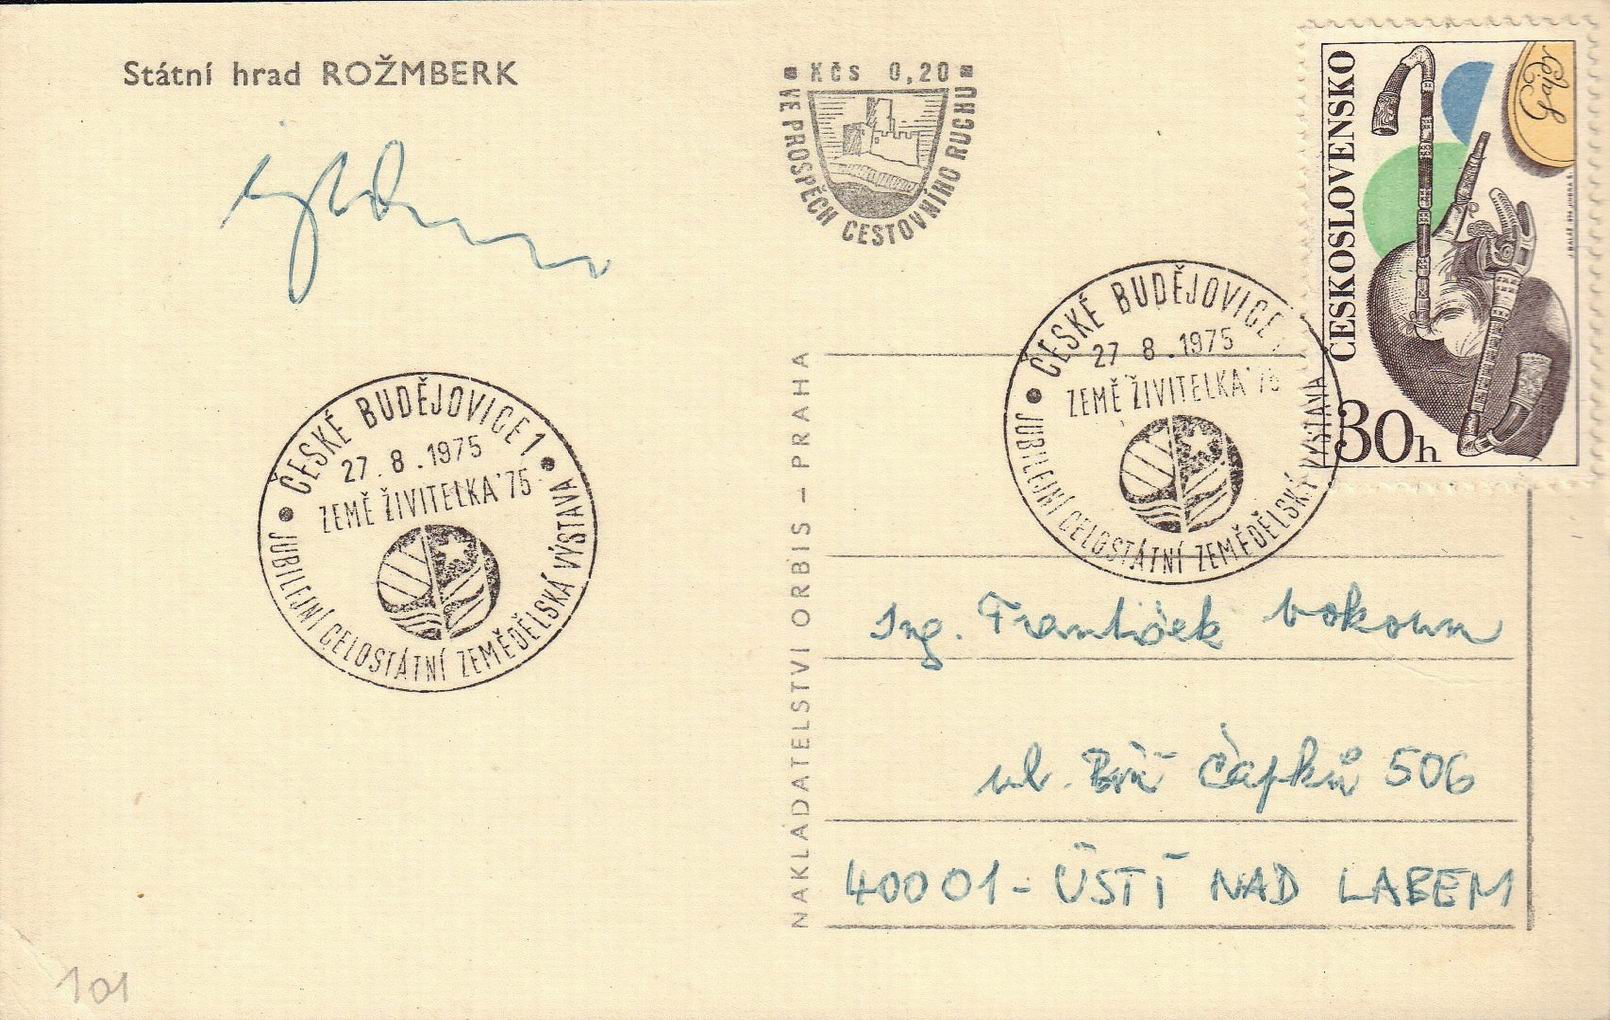 Státní hrad ROŽMBERK
Kčs 0,20
VE PROSPĚCH CESTOVNÍHO RUCHU
ČESKOSLOVENSKO
30h
ČESKÉ BUDĚJOVICE 1
27.8.1975
ZEMĚ ŽIVITELKA'75
JUBILEJNÍ CELOSTÁTNÍ ZEMĚDĚLSKÁ VÝSTAVA
ČESKÉ BUDĚJOVICE 1
27 8.1975
ZEMĚ ŽIVITELKA'75
JUBILEJNÍ CELOSTÁTNÍ ZEMĚDĚLSKÁ VÝSTAVA
NAKLADATELSTVÍ ORBIS – PRAHA
Ing. František Vokoun
ul. Bří Čapků 506
40001 - ÚSTÍ NAD LABEM
101